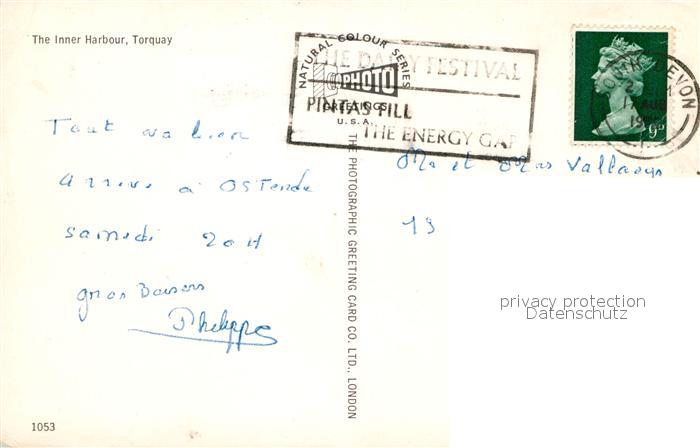 The Inner Harbour, Torquay
NATURAL COLOUR SERIES
PHOTO
GREETINGS
U.S.A.
THE DAIRY FESTIVAL
PINTAS FILL
THE ENERGY GAP
SOUTH DEVON
17 AUG
9D
Tout va bien
Arrive à OSTende
samedi 20H
gros Baisers
Philippe
THE PHOTOGRAPHIC GREETING CARD CO. LTD., LONDON
Mr et Mrs Vallaeys
13
privacy protection
Datenschutz
1053